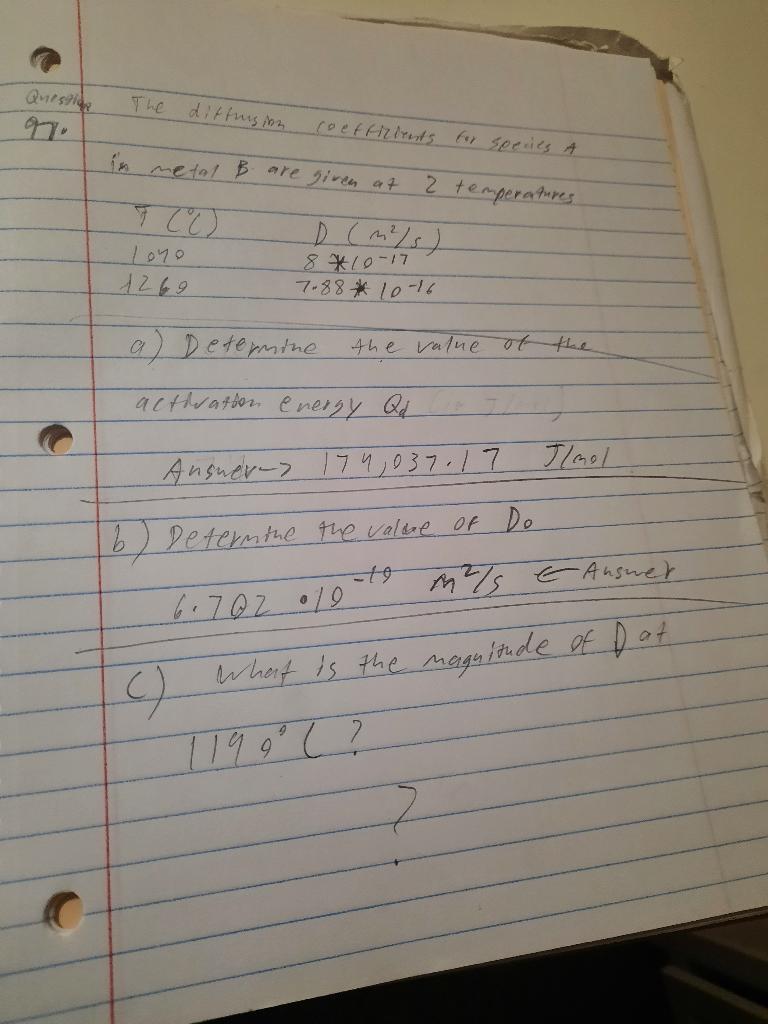 Question The diffusion coefficients for species A
97.
in metal B are given at 2 temperatures
T (°C) D (m²/s)
1040 8*10-17
1260 7.88*10-16
a) Determine the value of the
activation energy Qd
Answer-> 174,037.17 J/mol
b) Determine the value of Do
6.702 •10-10 m²/s <- Answer
c) What is the magnitude of D at
1190°C?
?